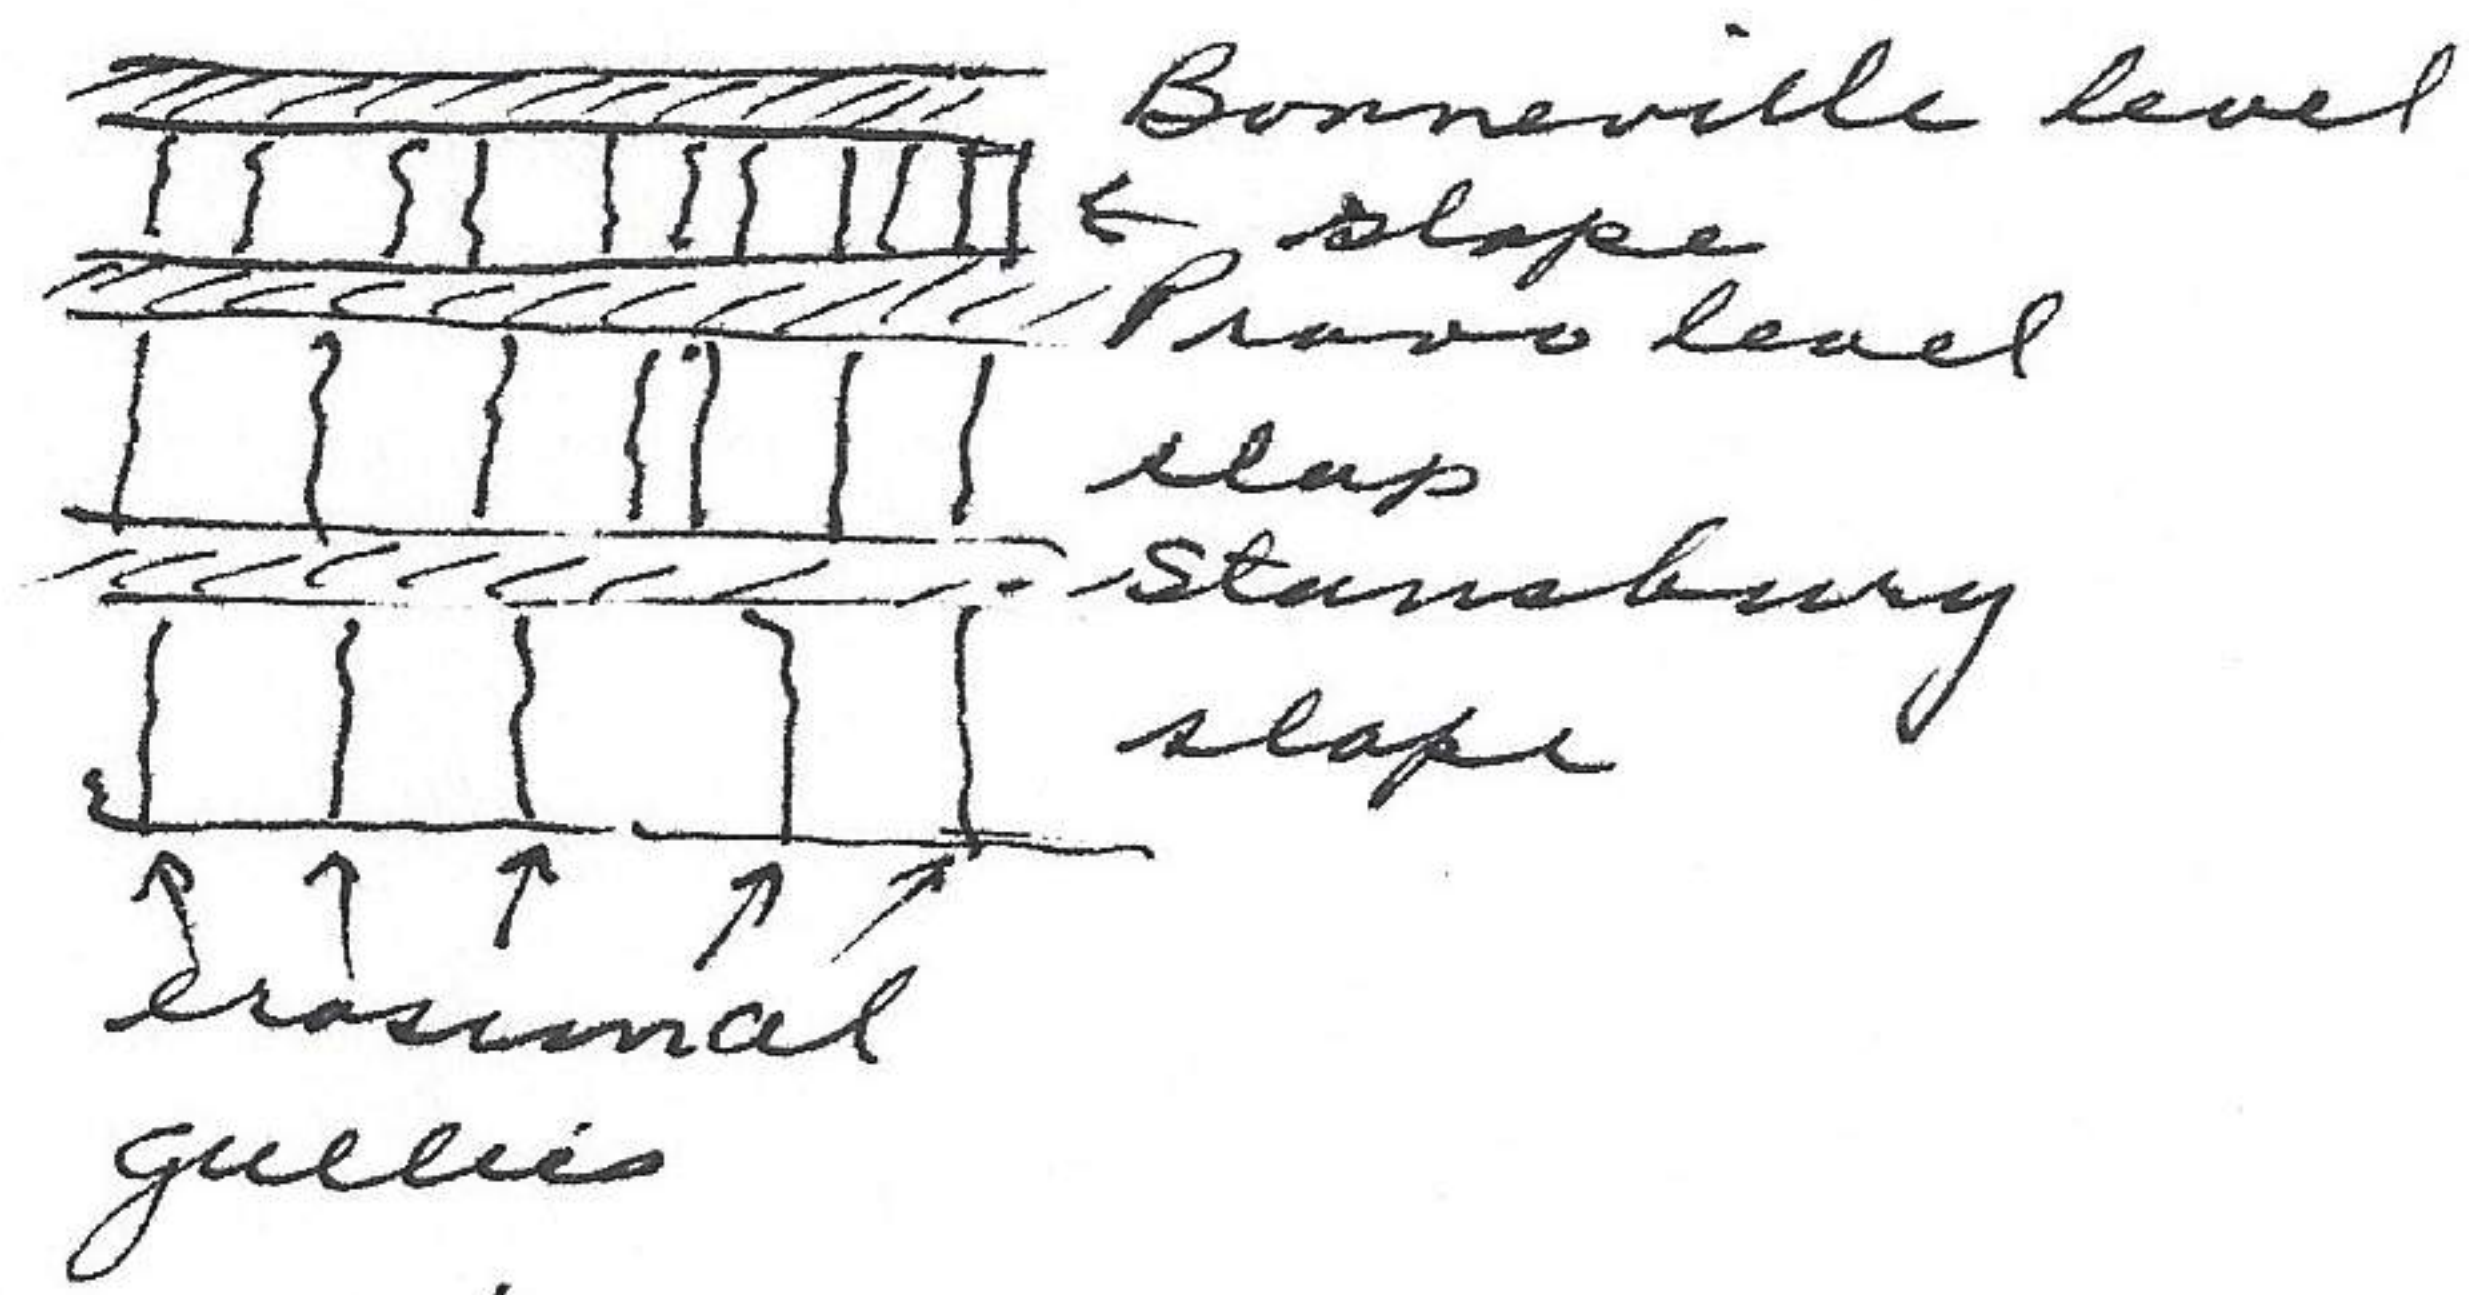 Bonneville level
← slope
Provo level
slop
Stansbury
slope
erosional
gullies